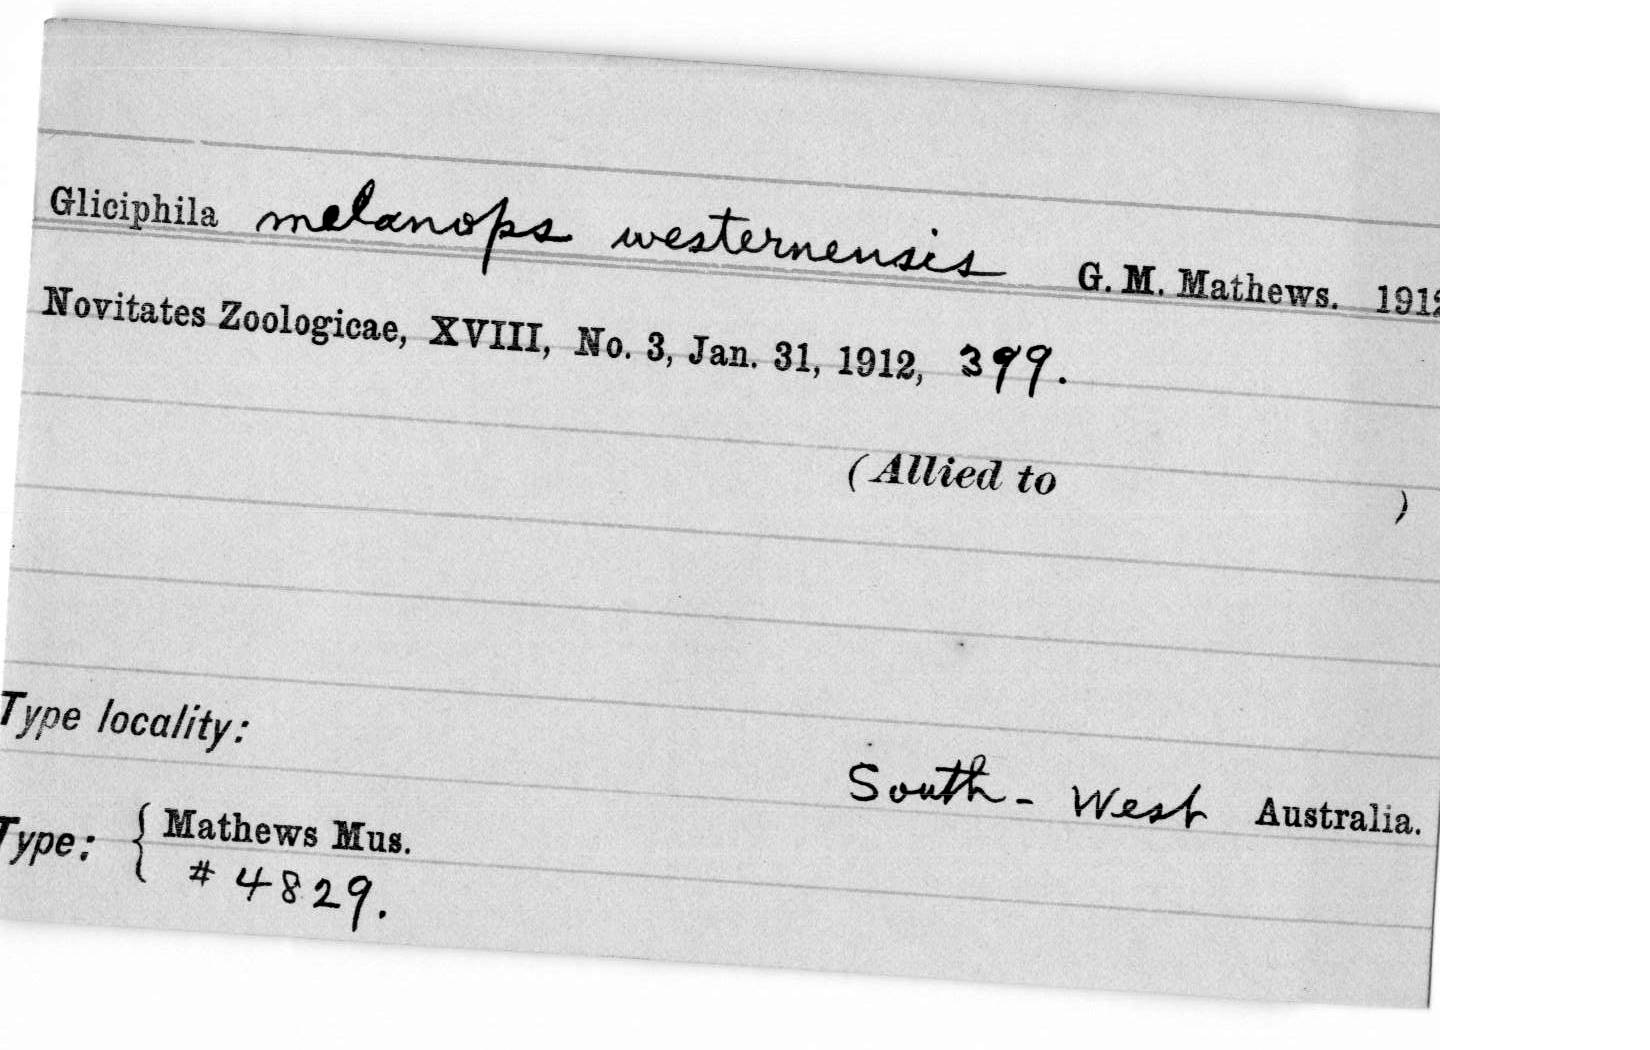 Gliciphila melanops westernensis G. M. Mathews. 1912
Novitates Zoologicae, XVIII, No. 3, Jan. 31, 1912, 399.
(Allied to )
Type locality:
South-West Australia.
Type: { Mathews Mus.
# 4829.